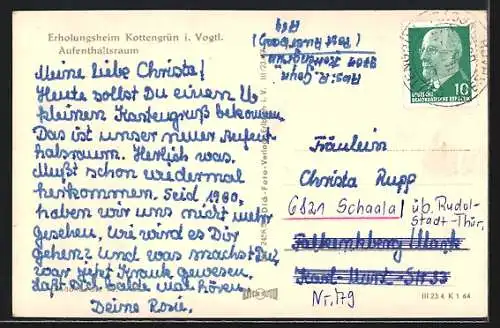 Erholungsheim Kottengrün i. Vogtl.
Aufenthaltsraum
Meine liebe Christa!
Heute sollst Du einen lb
kleinen Kartengruß bekommen.
Das ist unser neuer Aufent
haltsraum. Herlich was.
Mußt schon wiedermal
herkommen. Seid 1960,
haben wir uns nicht mehr
gesehen, wie wird es Dir
gehen? und was machst Du,
war jetzt Krank gewesen,
laß Dich balde mal hören.
Deine Rosie.
Abs: R.
9701 Kottengrün
(Post
III 23
DEUTSCHE
DEMOKRATISCHE REPUBLIK
10
Fräulein
Christa Rupp
6821 Schaala üb. Rudol-
stadt-Thür.
Falkenberg Mark
Karl-Marx-Str 33
Nr. 179
III 23 4 K 1 64